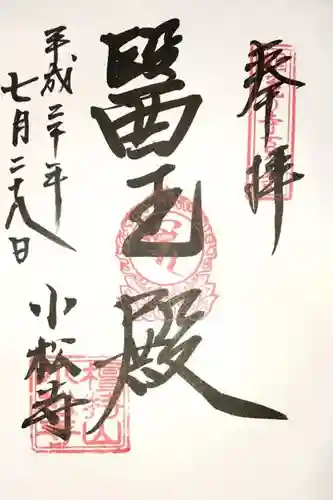 奉拝
醫王殿
平成二十年
七月二十八日
小松寺
檀持山